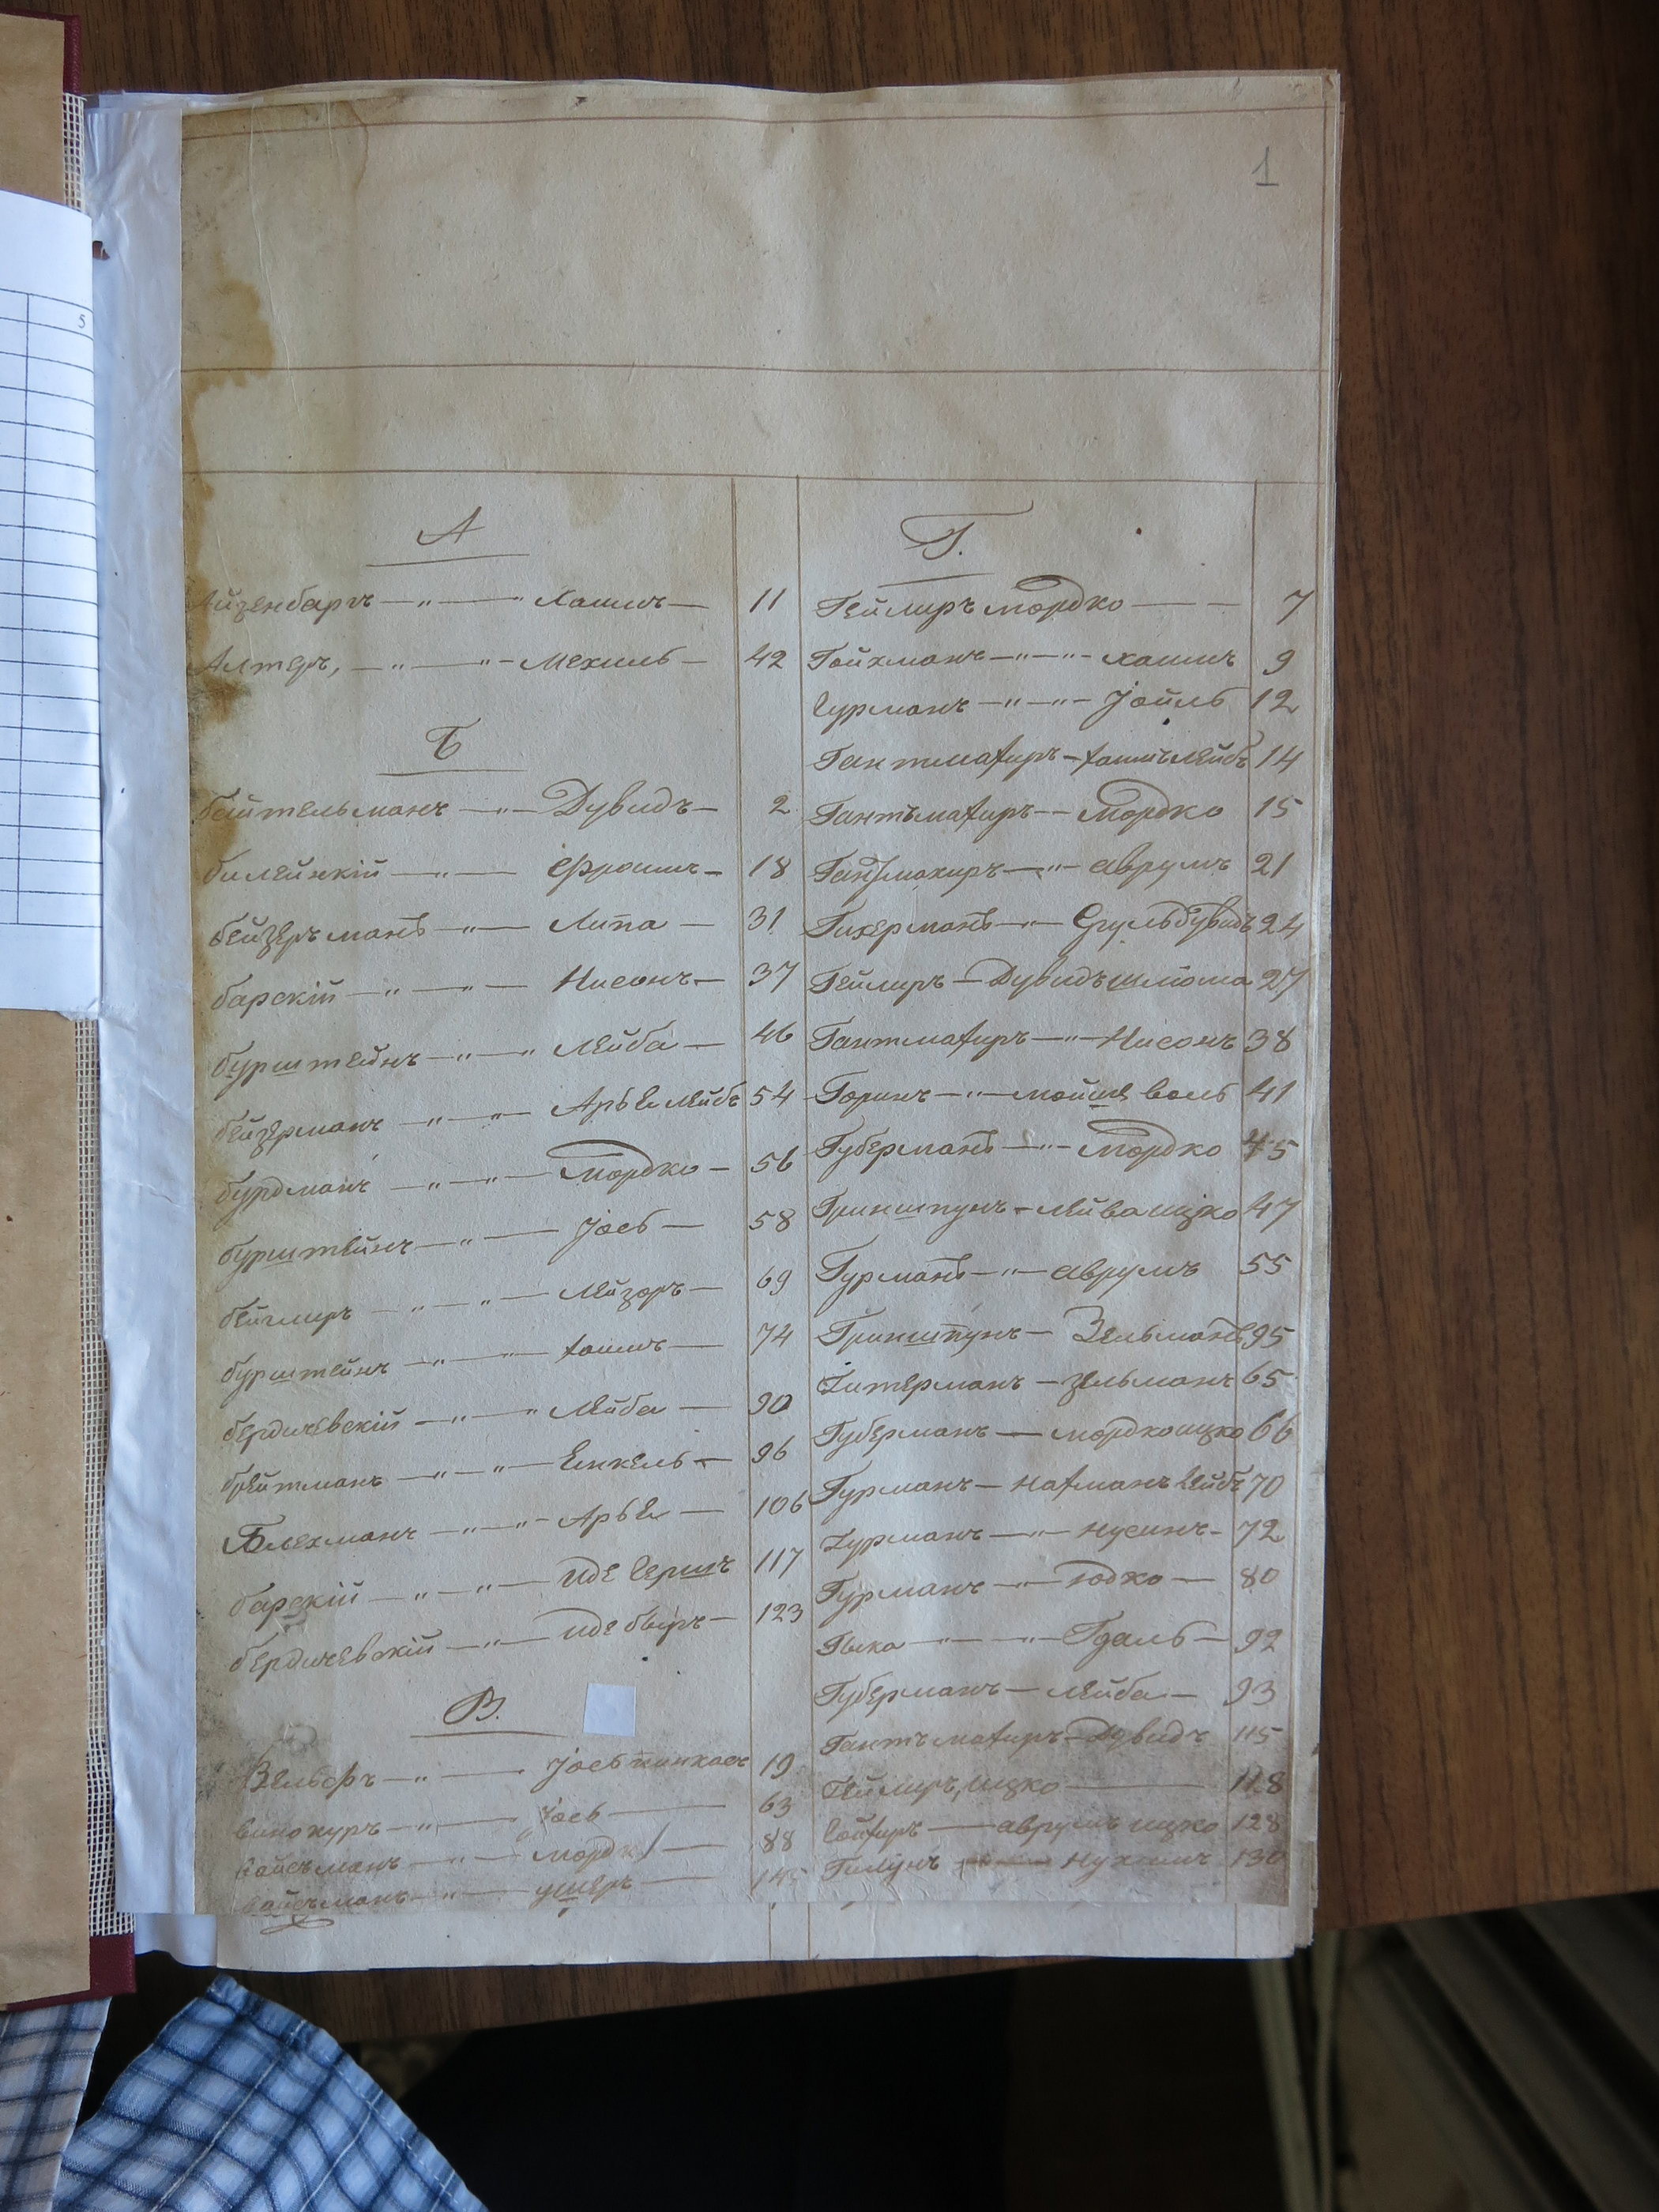 5
1
А
Айзенбаръ —„— Хаимъ — 11
Алтеръ, —„—„— Мехиль — 42
Б
бейтельманъ —„— Дувидъ — 2
билейнкій —„— Фроимъ — 18
бейзеръманъ —„— Липа — 31
барскій —„—„— Нисонъ — 37
бурштейнъ —„—„ Лейба — 46
бейзерманъ —„—„— Арье Лейбъ 54
бурдманъ —„—„— Мордко — 56
бурштейнъ —„— Јось — 58
—„—„— Лейзоръ — 69
бурштейнъ —„—„— хаимъ — 74
бердичевскій —„—„— Лейба — 90
брейтманъ —„—„— Енкель — 96
Блехманъ —„—„— Арье — 106
барскій —„—„— иде гершъ 117
бердичевскій —„— иде беръ — 123
В.
Вельфъ —„— Јось пинхасъ 19
винокуръ —„— Јось — 63
вайсъманъ —„— мордк — 88
вайсъманъ —„— ушеръ — 145
Г.
Геймиръ мордко — — 7
Гойхманъ —„—„— хаимъ 9
Гурманъ —„—„— Јойль 12
Гантмахиръ — хаимълейбъ 14
Гантъмахиръ — Мордко 15
Гантмахиръ —„— аврумъ 21
Гихерманъ —„— Сруль дувидъ 24
Геймиръ — Дувидъ шлиома 27
Гантмахиръ —„— Нисонъ 38
Горинъ —„— мойше воль 41
Губерманъ —„— Мордко 45
Гринштунъ — Лейба ицко 47
Гурманъ —„— аврумъ 55
Гринштунъ — Зельманъ 95
Гитерманъ — зельманъ 65
Губерманъ — мордко ицко 66
Гурманъ — нахманъ лейбъ 70
Гурманъ —„— нусинъ — 72
Гурманъ —„— юдко — 80
Гыка —„—„— Гдаль — 92
Губерманъ — лейба — 93
Гантъмахиръ — Дувидъ 115
Геймиръ, ицко — 118
Гойхиръ — аврумъ ицко 128
Гилунъ — Нухимъ 130